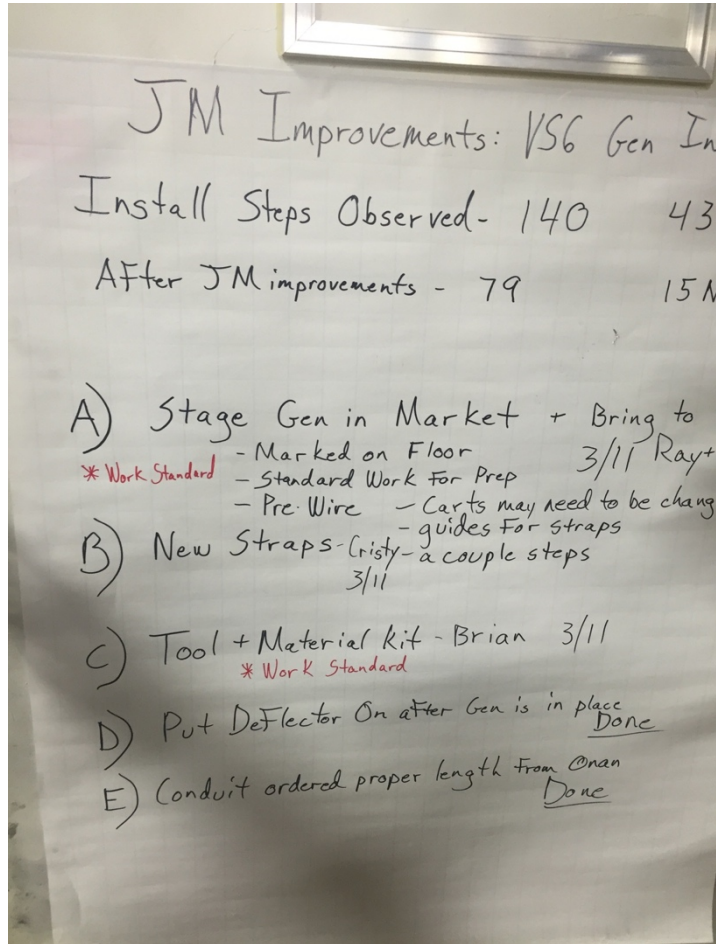 JM Improvements: VS6 Gen In
Install Steps Observed- 140 43
After JM improvements - 79 15 
A) Stage Gen in Market + Bring to
- Marked on Floor 3/11 Ray+
* Work Standard - Standard Work For Prep
- Pre-Wire - Carts may need to be chang
- guides For straps
B) New Straps - Cristy - a couple steps
3/11
C) Tool + Material kit - Brian 3/11
* Work Standard
D) Put Deflector On after Gen is in place
Done
E) Conduit ordered proper length From Onan
Done